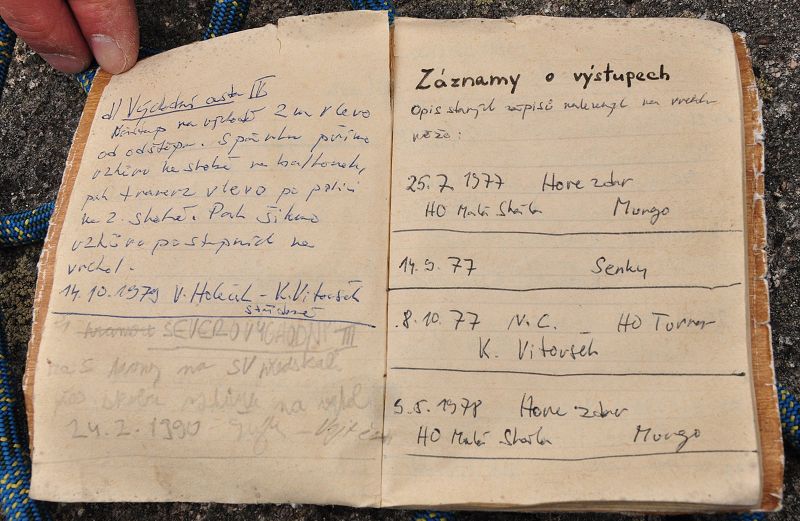 d) Východní cesta IV
Nástup na východě 2 m vlevo
od odštěpu. Spárou přímo
vzhůru ke skobě na balkonek,
pak travers vlevo po polici
ke 2. skobě. Pak šikmo
vzhůru po stupních na
vrchol.
14.10.1979 V. Holeček - K. Vitoušek
střídavě
SEVEROVÝCHODNÍ III
na SV předskalí
na
24.2.1990
Záznamy o výstupech
Opis starých zápisů nalezených na vrcholu
věže:
25.7 1977 Hore zdar
HO Malá Skála Mungo
14.9.77 Senky
8.10.77 N.C. HO Turnov
K. Vitoušek
5.5.1978 Hore zdar
HO Malá Skála Mungo